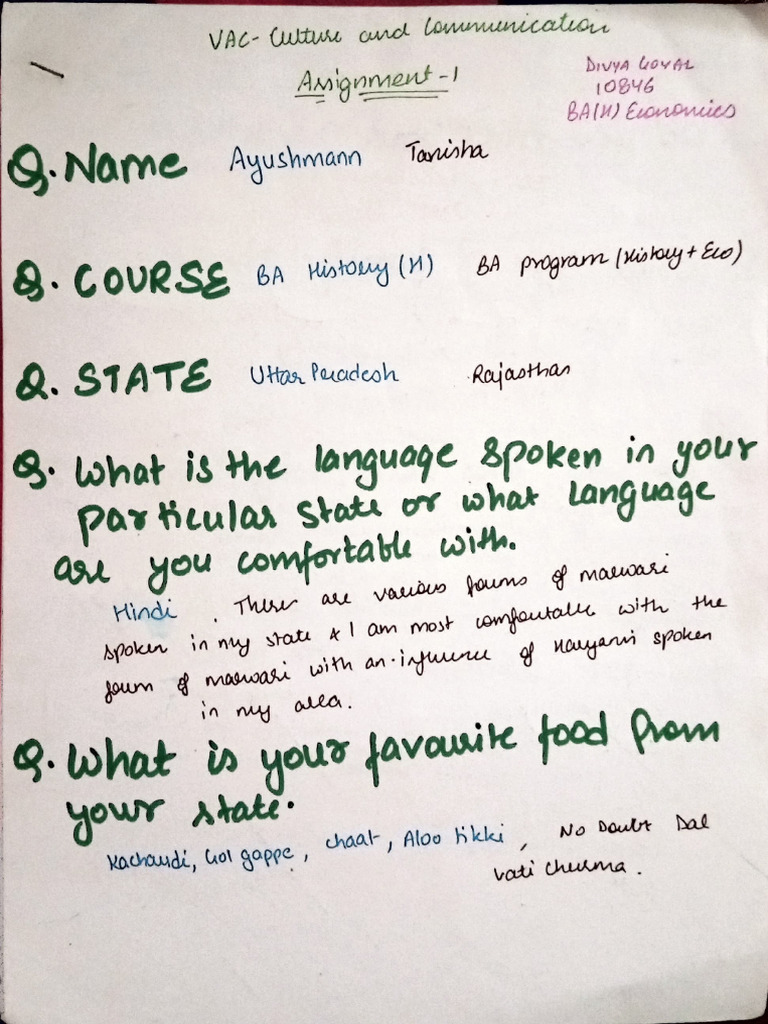 VAC- Culture and Communication
Assignment -1
DIVYA GOYAL
10846
BA(H) Economics
Q. Name Ayushmann Tanisha
Q. COURSE BA History (H) BA program (History + Eco)
Q. STATE Uttar Pradesh Rajasthan
Q. What is the language spoken in your
particular state or what language
are you comfortable with.
Hindi . There are various forms of marwari
spoken in my state & I am most comfortable with the
form of marwari with an influence of Haryanvi spoken
in my area.
Q. What is your favourite food from
your state.
Kachaudi, Gol gappe, chaat, Aloo tikki, No Doubt Dal
Vati Churma.